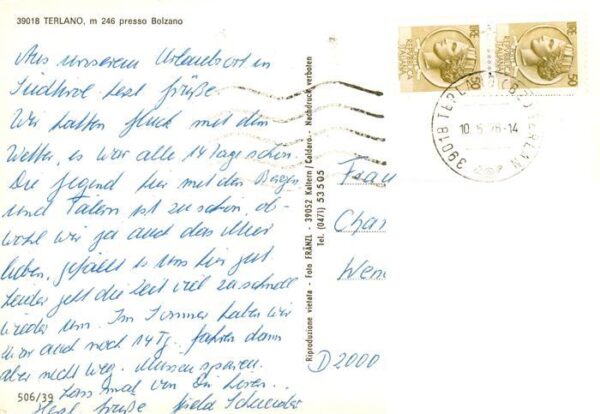 39018 TERLANO, m 246 presso Bolzano
Aus unserem Urlaubsort in
Südtirol herzl. Grüße.
Wir hatten Glück mit dem
Wetter, es war alle 14 Tage schön.
Die Gegend hier mit den Bergen
und Tälern ist zu schön, ob-
wohl wir ja auch das Meer
lieben, gefällt es uns hier gut
Leider geht die Zeit viel zu schnell
wieder um. Im Sommer haben wir
zwar auch noch 14 Tg. fahren dann
aber nicht weg. Müssen sparen.
Lass mal von Dir hören...
Herzl. Grüße Gisela Schneider
506/39
Riproduzione vietata - Foto FRÄNZL - 39052 Kaltern / Caldaro - Nachdruck verboten
Tel. (0471) 53505
50
REPUBBLICA
ITALIANA
50
REPUBBLICA
ITALIANA
39018 TERLANO (BZ) TERLAN
10.5.76-14
Frau
Char
Wen
D 2000